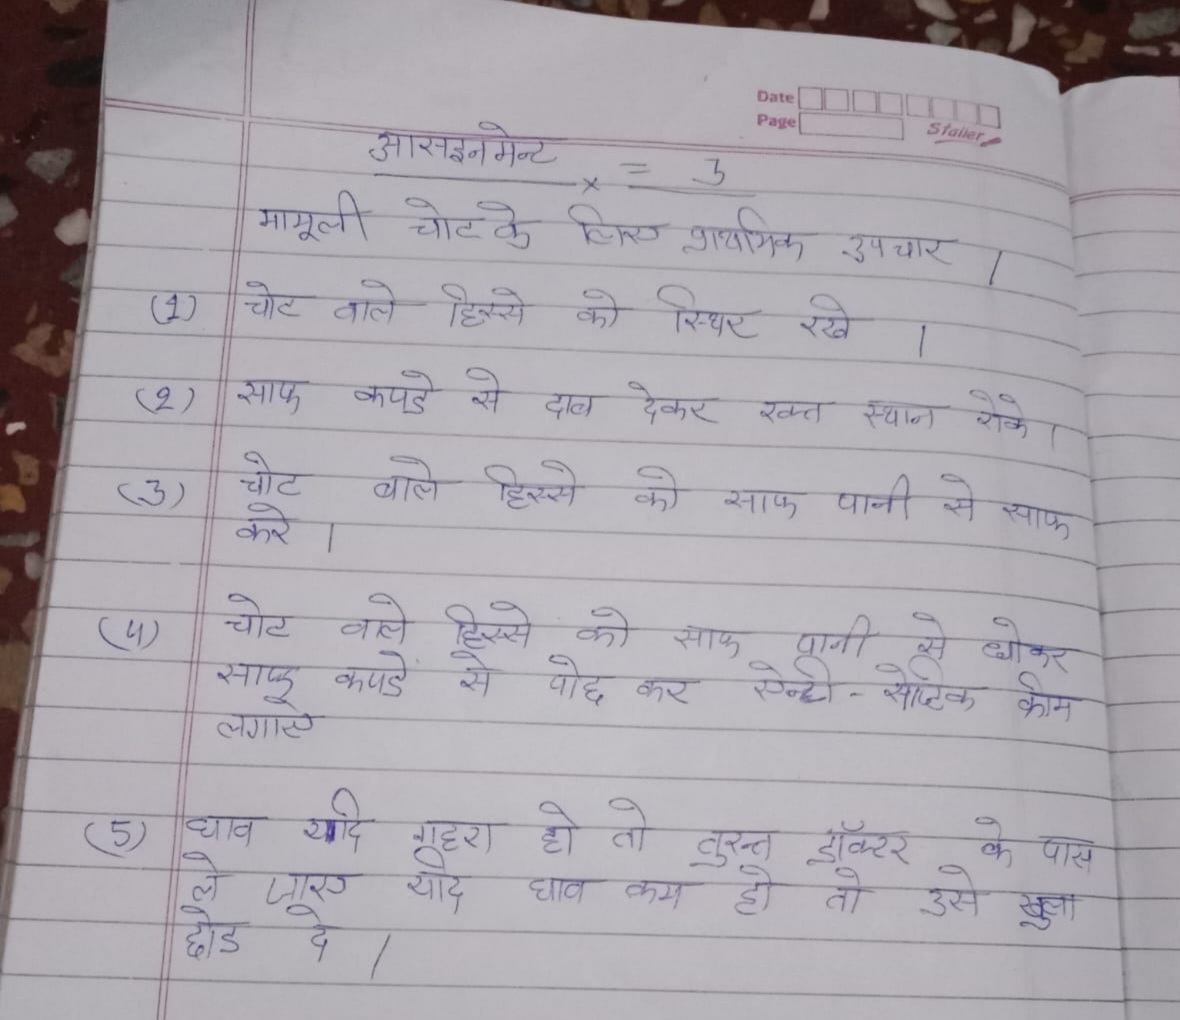 Date
Page
Staller
आसइनमेन्ट x = 3
मामूली चोट के लिए प्राथमिक उपचार ।
(1) चोट वाले हिस्से को स्थिर रखे ।
(2) साफ कपडे से दाब देकर रक्त स्थान रोके ।
(3) चोट वाले हिस्से को साफ पानी से साफ
करे ।
(4) चोट वाले हिस्से को साफ पानी से धोकर
साफ कपडे से पोछ कर एन्टी - सेप्टिक क्रीम
लगाए
(5) घाव यदि गहरा हो तो तुरन्त डॉक्टर के पास
ले जाए यदि घाव कम हो तो उसे खुला
छोड दे ।